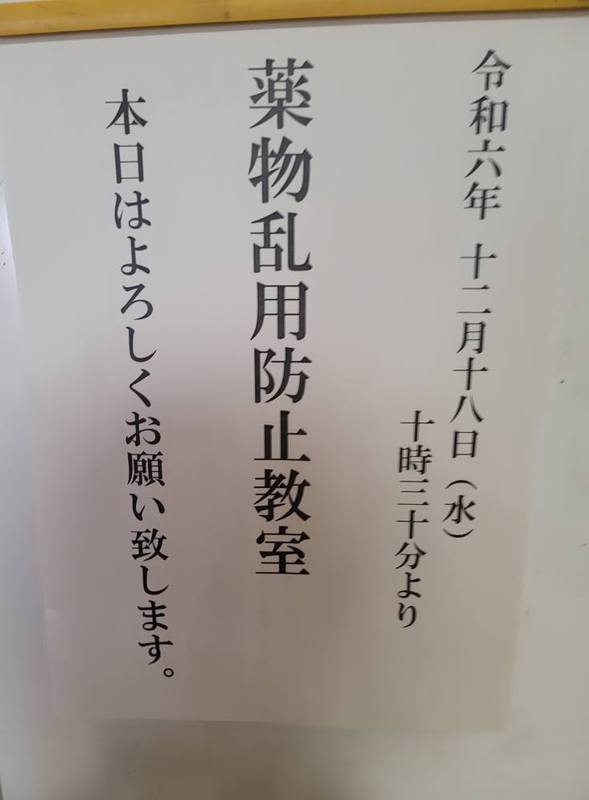 令和六年 十二月十八日（水）
十時三十分より
薬物乱用防止教室
本日はよろしくお願い致します。